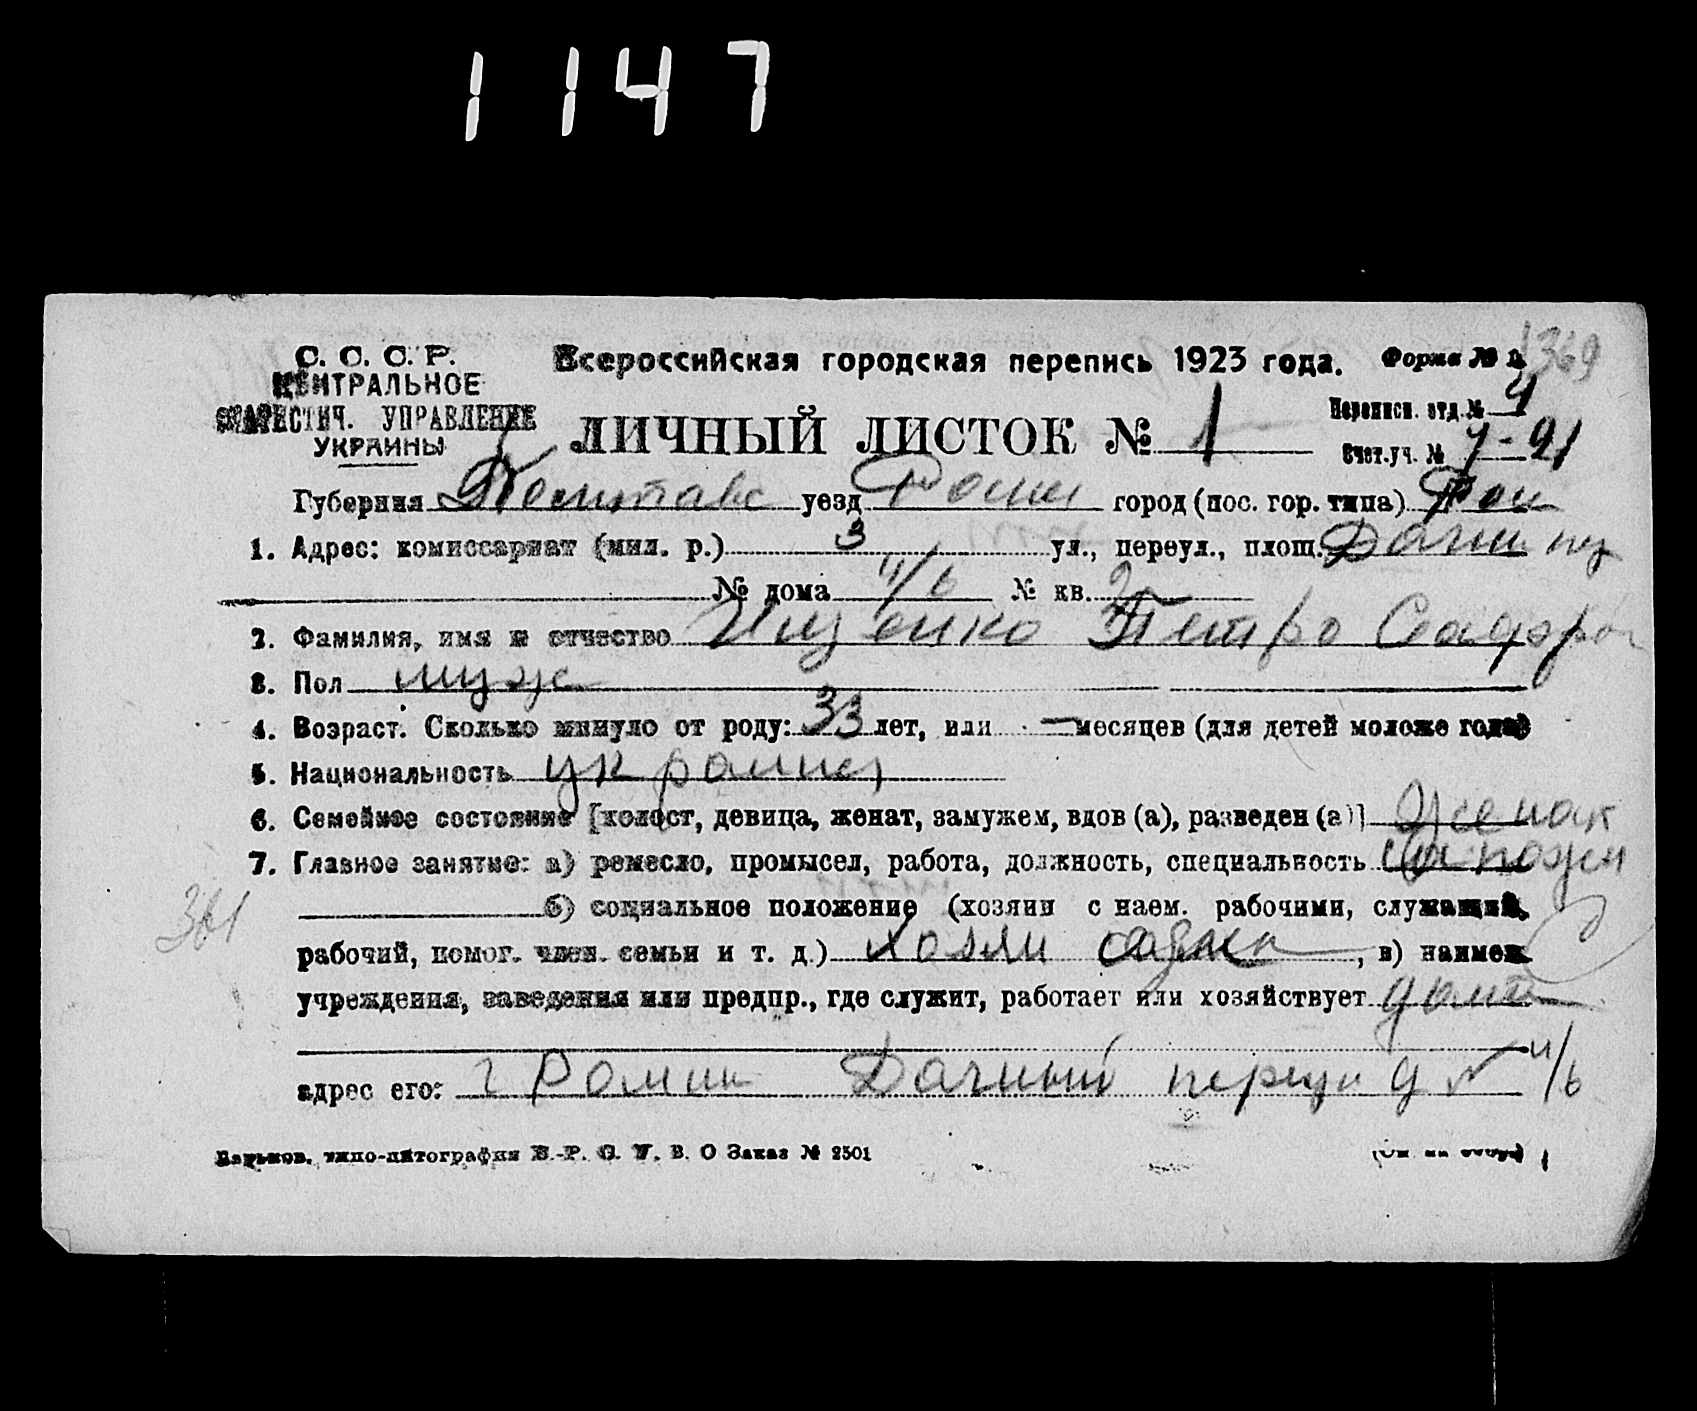 1147
С. С. С. Р.
ЦЕНТРАЛЬНОЕ
СТАТИСТИЧ. УПРАВЛЕНИЕ
УКРАИНЫ
Всероссийская городская перепись 1923 года.
Форма № 2
1369
ЛИЧНЫЙ ЛИСТОК № 1
Переписн. отд. № 4
Счет. уч. №
Губерния Полтавс уезд Ромн город (пос. гор. типа) Ром
1. Адрес: комиссариат (мил. р.) 3 ул., переул., площ. Дачн
№ дома 11/6 № кв. 2
2. Фамилия, имя и отчество Ищенко Петро Сафрон
3. Пол муж
4. Возраст. Сколько минуло от роду: 33 лет, или — месяцев (для детей моложе года)
5. Национальность украинец
6. Семейное состояние [холост, девица, женат, замужем, вдов (а), разведен (а)] Женат
7. Главное занятие: а) ремесло, промысел, работа, должность, специальность Сапожн
361
б) социальное положение (хозяин с наем. рабочими, служащий,
рабочий, помог. член. семьи и т. д.) хозяин один, в) наимен.
учреждения, заведения или предпр., где служит, работает или хозяйствует дома
адрес его: г Ромны Дачный переул д № 11/6
Харьков, типо-литография В.-Р. С. У. В. О Заказ № 2501
(См. на обор.)